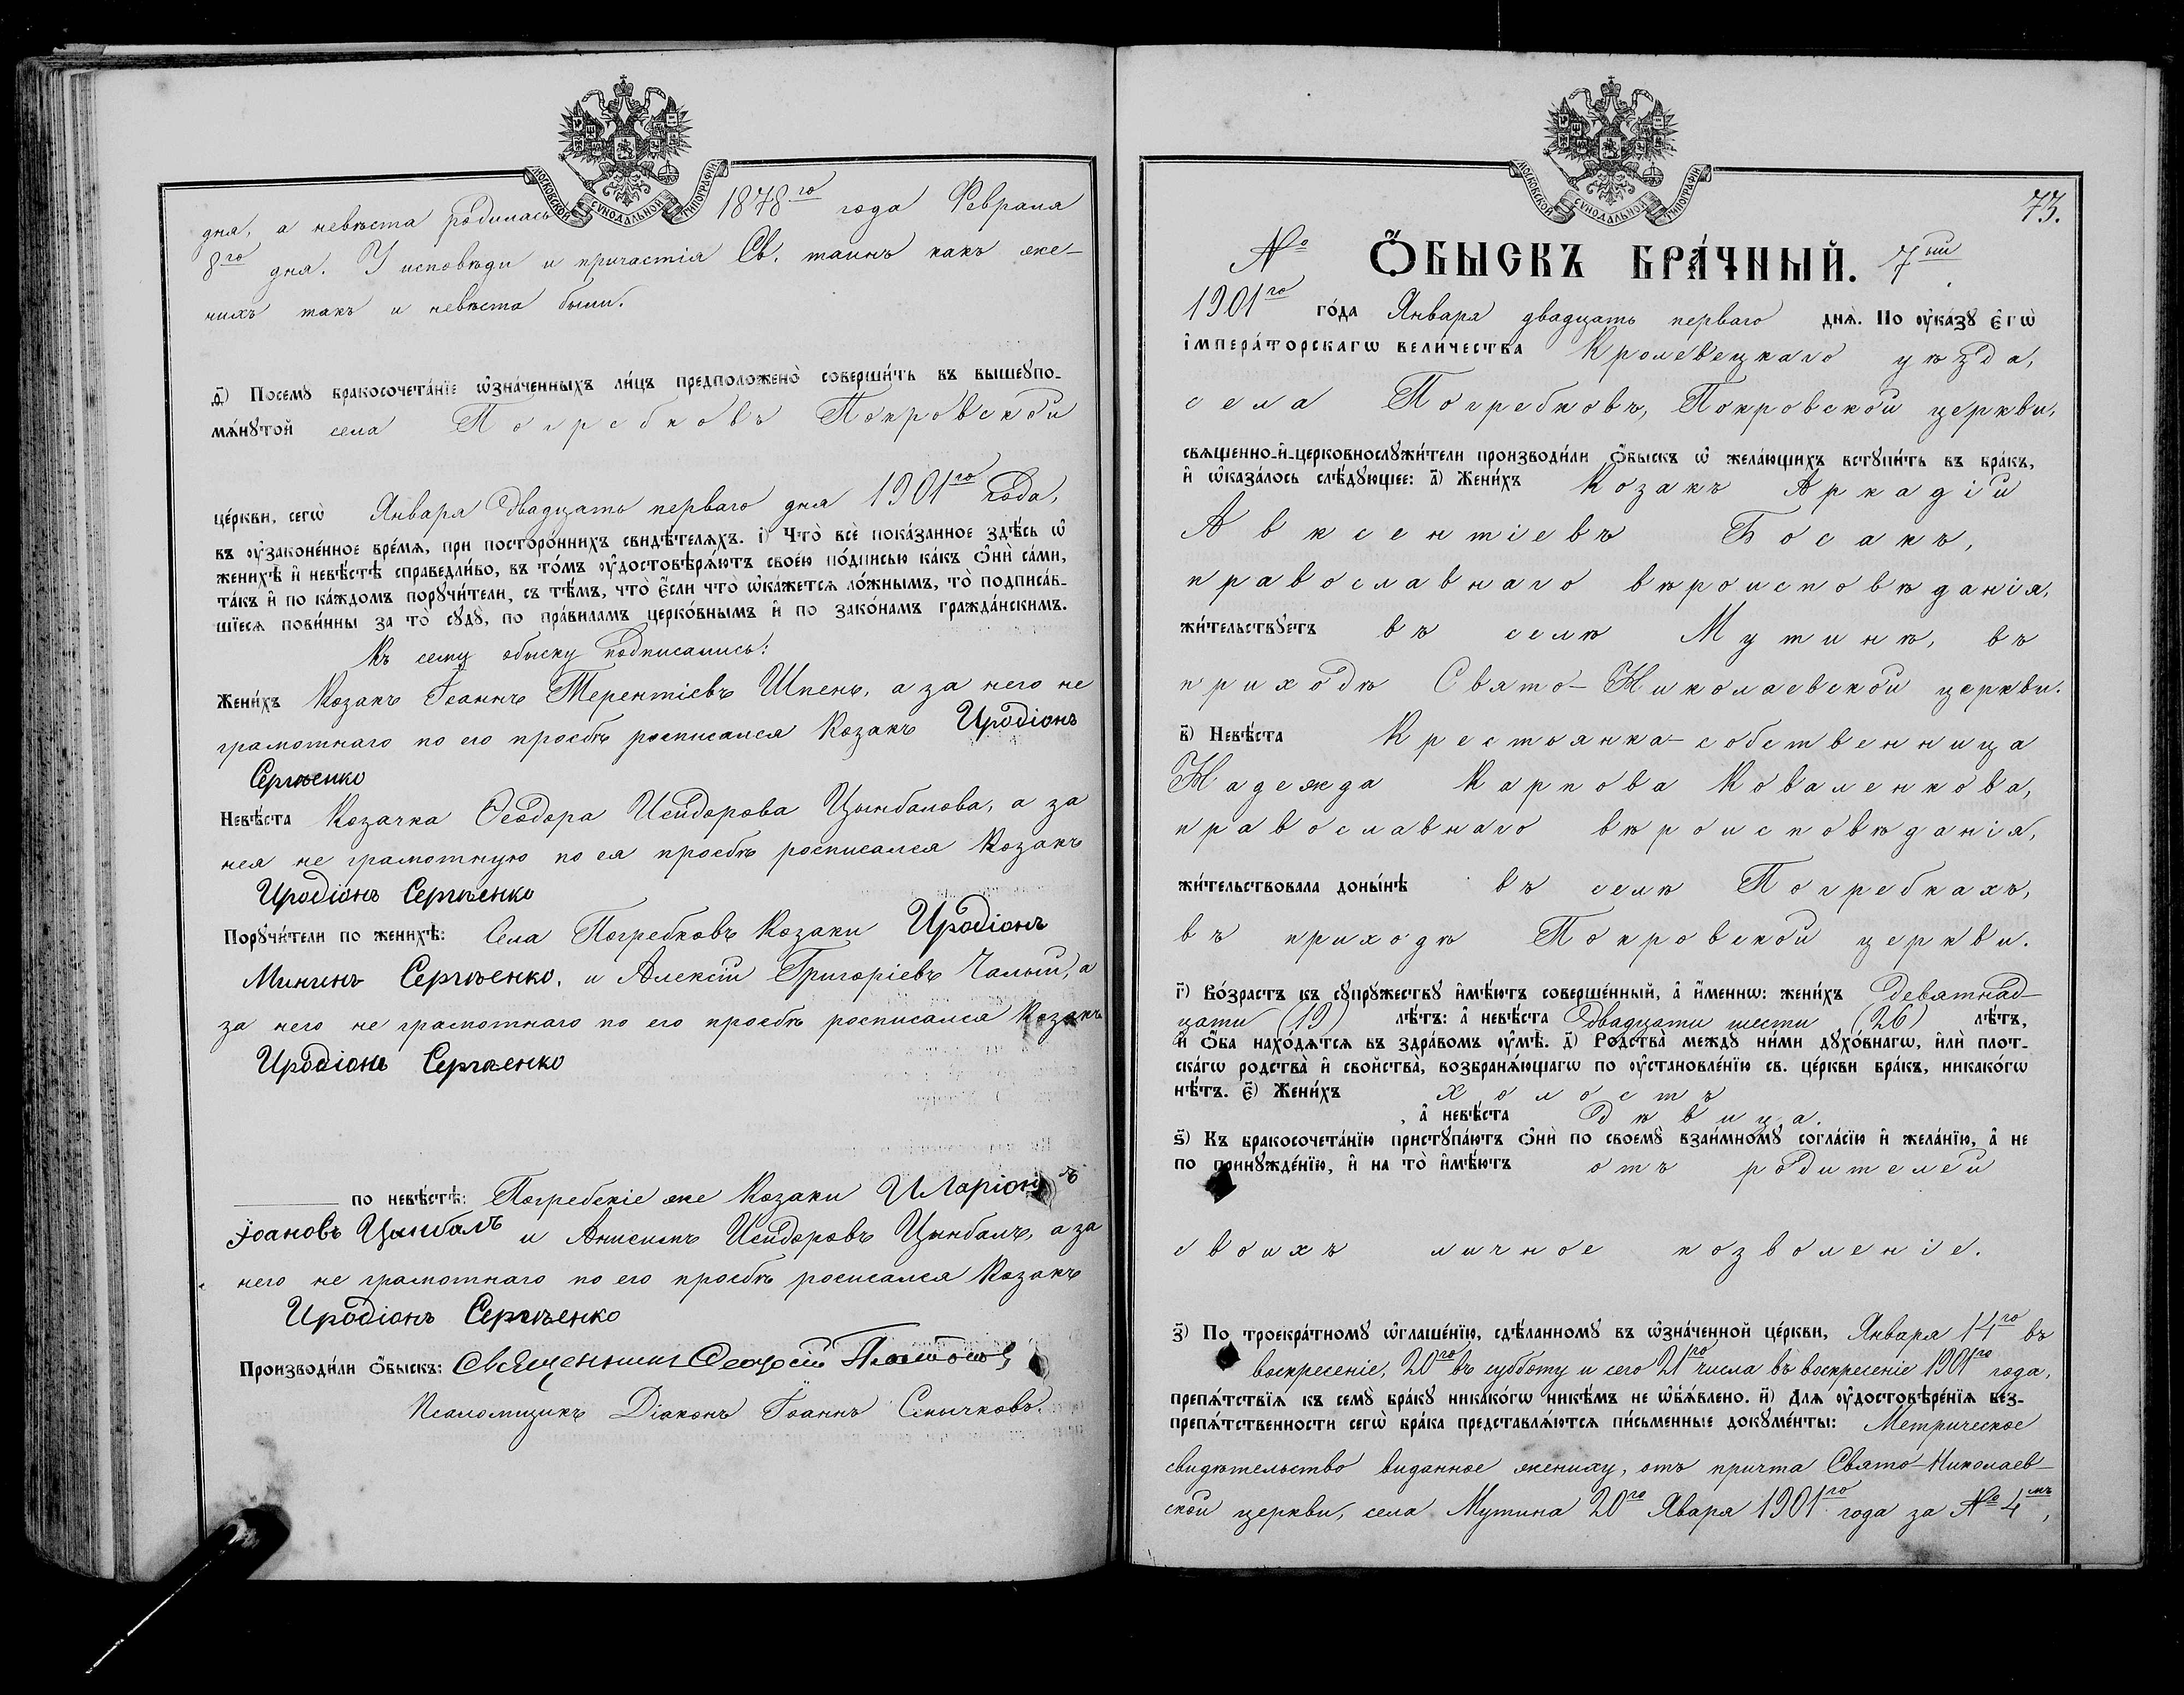 МОСКОВСКОЙ СѴНОДАЛЬНОЙ ТИПОГРАФІИ
дня, а невѣста родилась 1878го года Февраля
8го дня. У исповѣди и причастія Св. таинъ какъ же-
нихъ такъ и невѣста были.
д҃) Посемꙋ бракосочета́нїе ѡ҆зна́ченныхъ ли́цъ предположено̀ соверши́ть въ вышеꙋпо-
мѧ́нꙋтой села Погребковъ Покровской
це́ркви, сегѡ̀ Января двадцать перваго дня 1901го года,
въ ᲂу҆законе́нное вре́мѧ, при посторо́ннихъ свидѣ́телѧхъ. і҃) Что̀ всѐ пока́занное здѣ́сь ѡ҆
женихѣ̀ и҆ невѣ́стѣ справедли́во, въ то́мъ ᲂу҆достовѣрѧ́ютъ свое́ю по́дписью ка́къ ѻ҆нѝ са́ми,
та́къ и҆ по ка́ждомъ порꙋчи́тели, съ тѣ́мъ, что̀ є҆́сли что̀ ѡ҆ка́жетсѧ ло́жнымъ, то̀ подписа́в-
шїесѧ пови́нны за то̀ сꙋдꙋ̀, по пра́виламъ церко́внымъ и҆ по зако́намъ гражда́нскимъ.
Къ сему обыску подписались:
Жени́хъ Козакъ Іоаннъ Терентіевъ Шпень, а за него не
грамотнаго по его просьбѣ росписался Козакъ Иродіонъ
Сергѣенко
Невѣ́ста Козачка Ѳеодора Исидорова Цымбалова, а за
нея не грамотную по ея просьбѣ росписался Козакъ
Иродіонъ Сергѣенко
Порꙋчи́тели по женихѣ̀: Села Погребковъ Козаки Иродіонъ
Мининъ Сергѣенко, и Алексѣй Григоріевъ Чалый, а
за него не грамотнаго по его просьбѣ росписался Козакъ
Иродіонъ Сергѣенко
по невѣ́стѣ: Погребскіе же Козаки Иларіонъ
Іоановъ Цымбалъ и Анисимъ Исидоровъ Цымбалъ, а за
него не грамотнаго по его просьбѣ росисался Козакъ
Иродіонъ Сергѣенко
Производи́ли ѻ҆́быскъ: Священникъ
Псаломщикъ Діаконъ Іоаннъ Смычковъ.
МОСКОВСКОЙ СѴНОДАЛЬНОЙ ТИПОГРАФІИ
73.
№ Ѻ҆́БЫСКЪ БРА́ЧНЫЙ. 7ый
1901го го́да Января двадцать перваго днѧ̀. По ᲂу҆ка́зꙋ є҆гѡ̀
і҆мпера́торскагѡ вели́чества Кролевецкаго уѣзда,
села Погребковъ, Покровской церкви,
свѧще́нно-и҆-церковнослꙋжи́тели производи́ли ѻ҆́быскъ ѡ҆ жела́ющихъ встꙋпи́ть въ бра́къ,
и҆ ѡ҆каза́лось слѣ́дꙋющее: а҃) Жени́хъ Козакъ Аркадій
Авксентіевъ Босакъ,
православнаго вѣроисповѣданія,
жи́тельствꙋетъ въ селѣ Мутинѣ, въ
приходѣ Свято-Николаевской церкви.
в҃) Невѣ́ста Крестьянка-собственница
Надежда Карпова Коваленкова,
православнаго вѣроисповѣданія,
жи́тельствовала доны́нѣ въ селѣ Погребкахъ,
въ приходѣ Покровской церкви.
г҃) Во́зрастъ къ сꙋпрꙋ́жествꙋ и҆мѣ́ютъ соверше́нный, а҆ и҆́меннѡ: жени́хъ девятнад-
цати (19) лѣ́тъ: а҆ невѣ́ста двадцати шести (26) лѣ́тъ,
и҆ ѻ҆́ба нахо́дѧтсѧ въ здра́вомъ ᲂу҆мѣ̀. д҃) Родства̀ междꙋ ни́ми дꙋхо́внагѡ, и҆лѝ пло́т-
скагѡ родства̀ и҆ сво́йства̀, возбранѧ́ющагѡ по ᲂу҆становле́нїю св. це́ркви бра́къ, никако́гѡ
нѣ́тъ. є҃) Жени́хъ холостъ
, а҆ невѣ́ста дѣвица.
ѕ҃) Къ бракосочета́нїю пристꙋпа́ютъ ѻ҆нѝ по своемꙋ̀ взаи́мномꙋ согла́сїю и҆ жела́нїю, а҆ не
по принꙋжде́нїю, и҆ на то̀ и҆мѣ́ютъ отъ родителей
своихъ личное позволеніе.
з҃) По троекра́тномꙋ ѡ҆глаше́нїю, сдѣ́ланномꙋ въ ѡ҆зна́ченной це́ркви, Января 14го въ
воскресеніе, 20го въ субботу и сего 21го числа въ воскресеніе 1901го года,
препѧ́тствїѧ къ семꙋ̀ бра́кꙋ никако́гѡ никѣ́мъ не ѡ҆б̾ѧ́влено. и҃) Длѧ ᲂу҆достовѣре́нїѧ без-
препѧ́тственности сегѡ̀ бра́ка представлѧ́ютсѧ пи́сьменные докꙋме́нты: Метрическое
свидѣтельство виданное жениху, отъ причта Свято-Николаев-
ской церкви, села Мутина 20го Яваря 1901го года за № 4мъ,